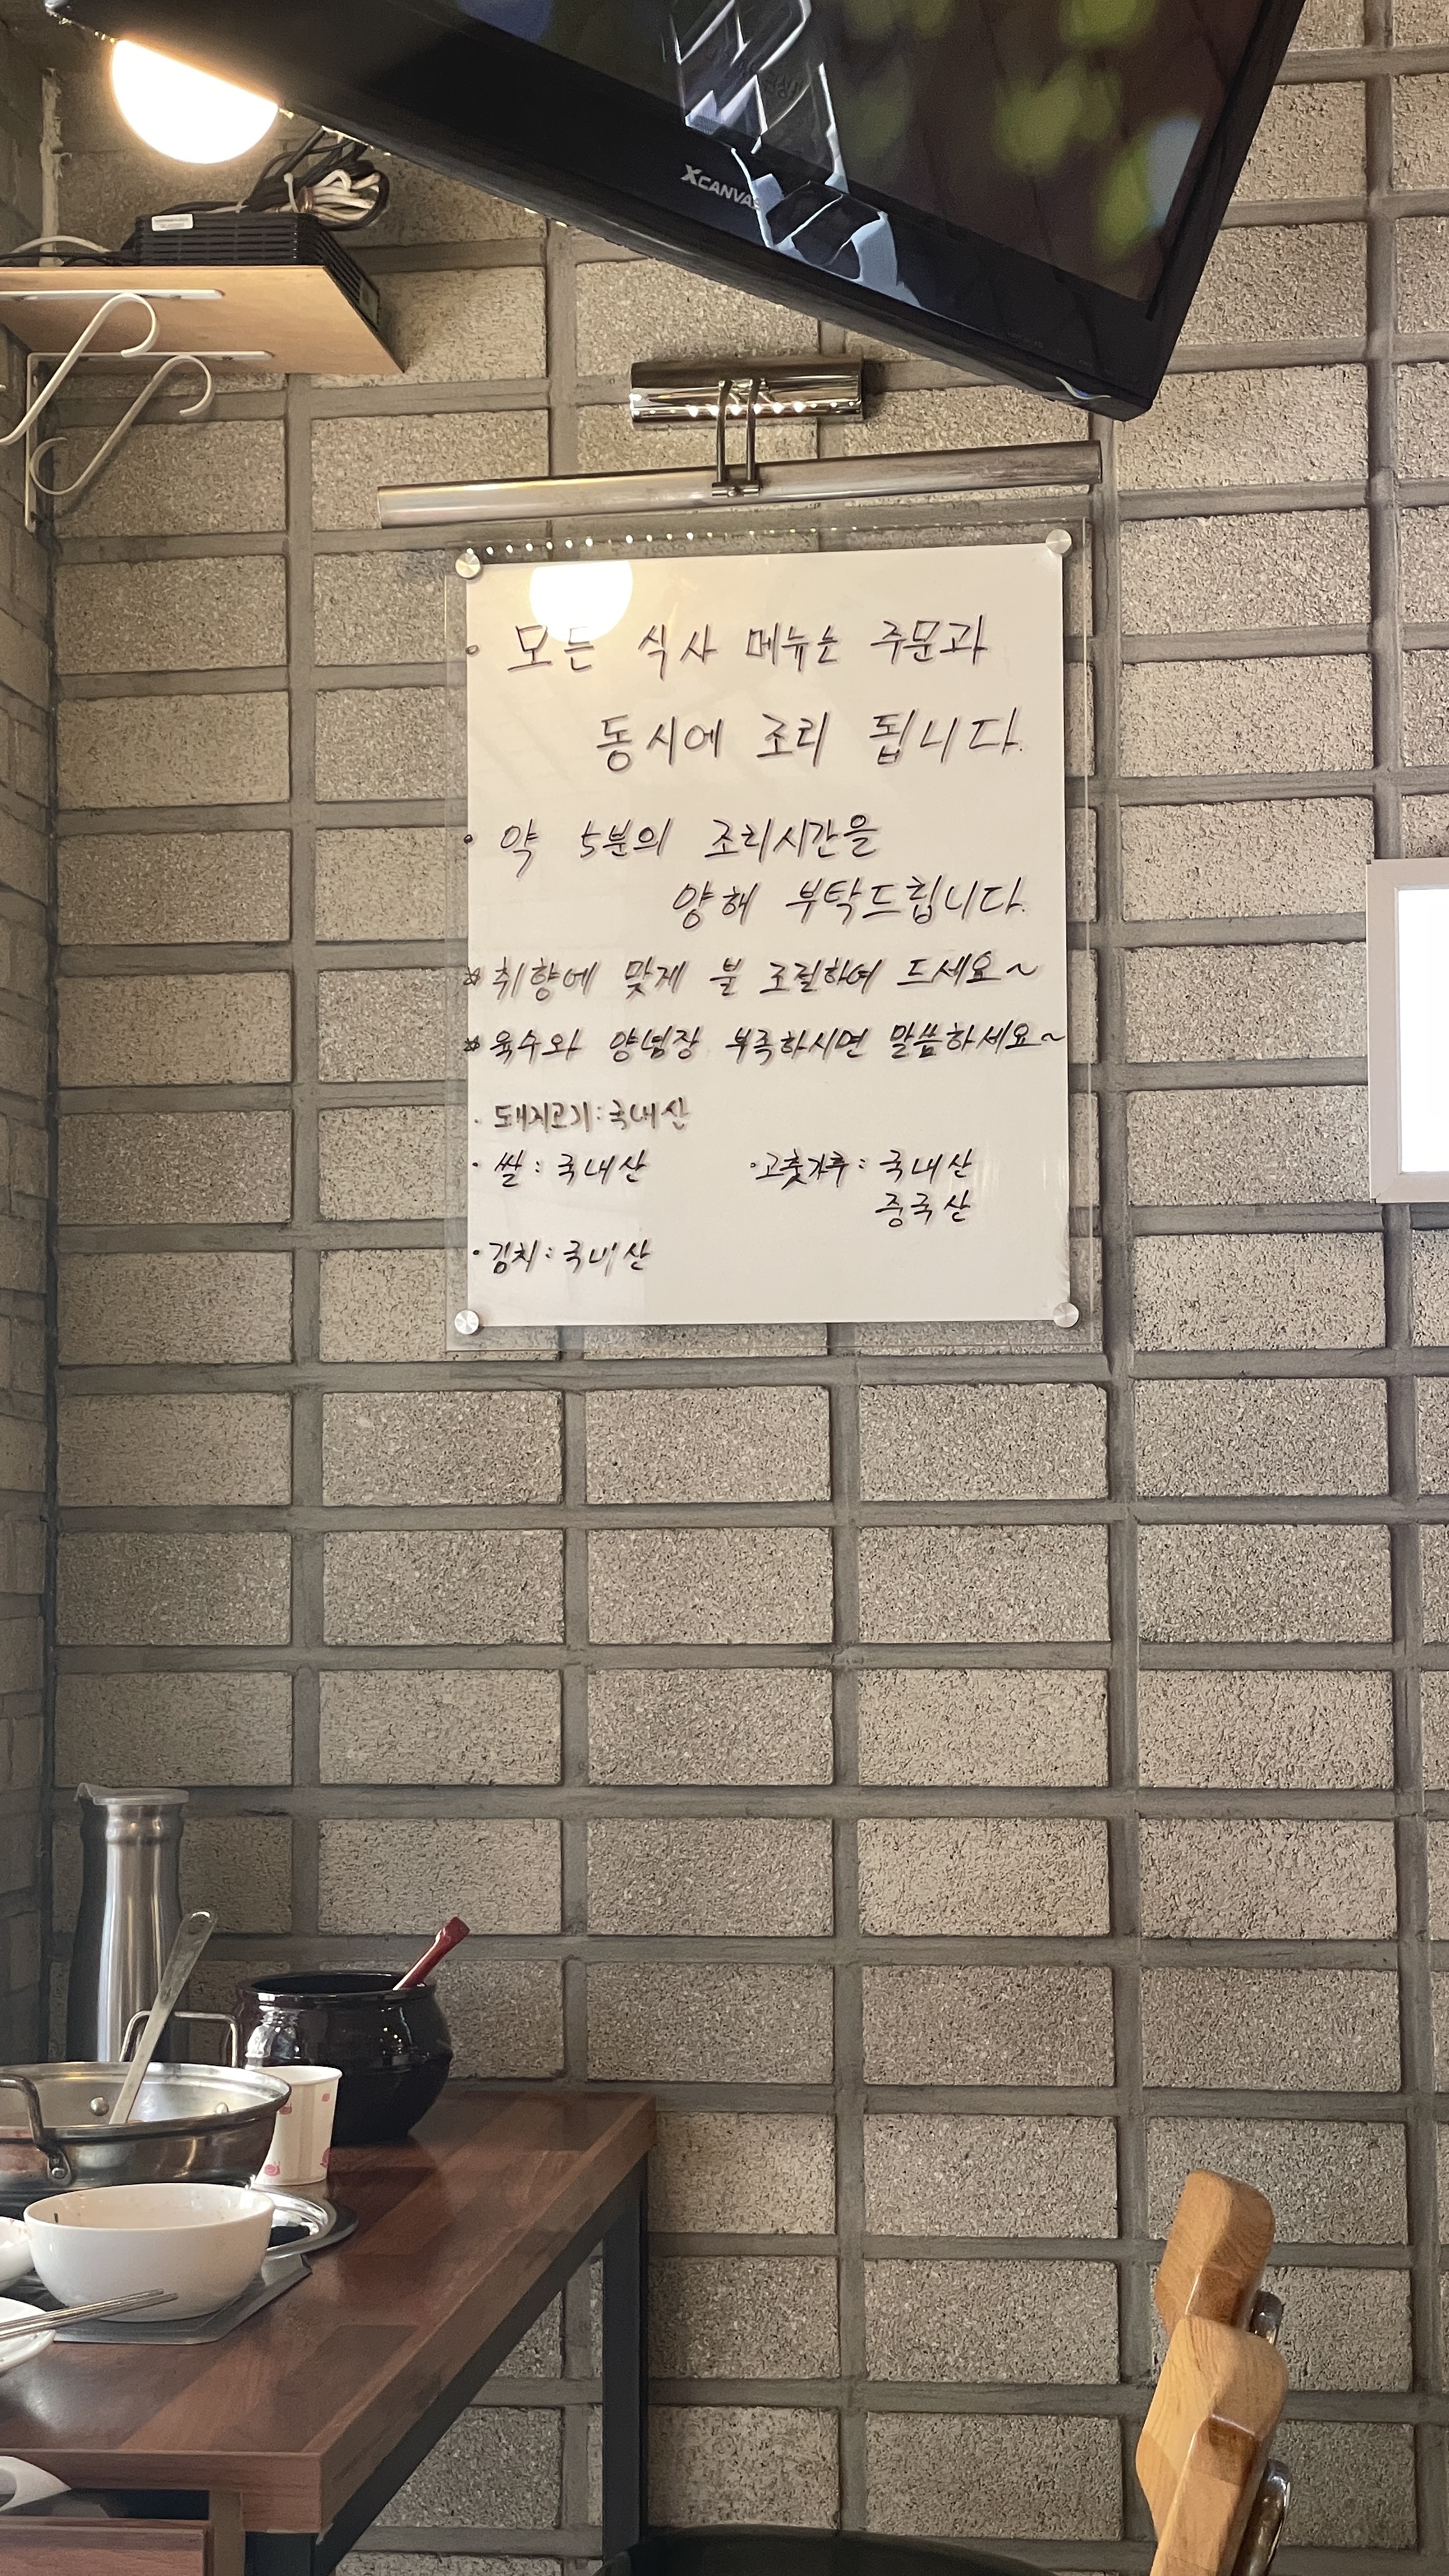 XCANVAS
◦ 모든 식사 메뉴는 주문과
동시에 조리 됩니다.
◦ 약 5분의 조리시간을
양해 부탁드립니다.
* 취향에 맞게 불 조절하여 드세요~
* 육수와 양념장 부족하시면 말씀하세요~
· 돼지고기 : 국내산
· 쌀 : 국내산 · 고춧가루 : 국내산
중국산
· 김치 : 국내산